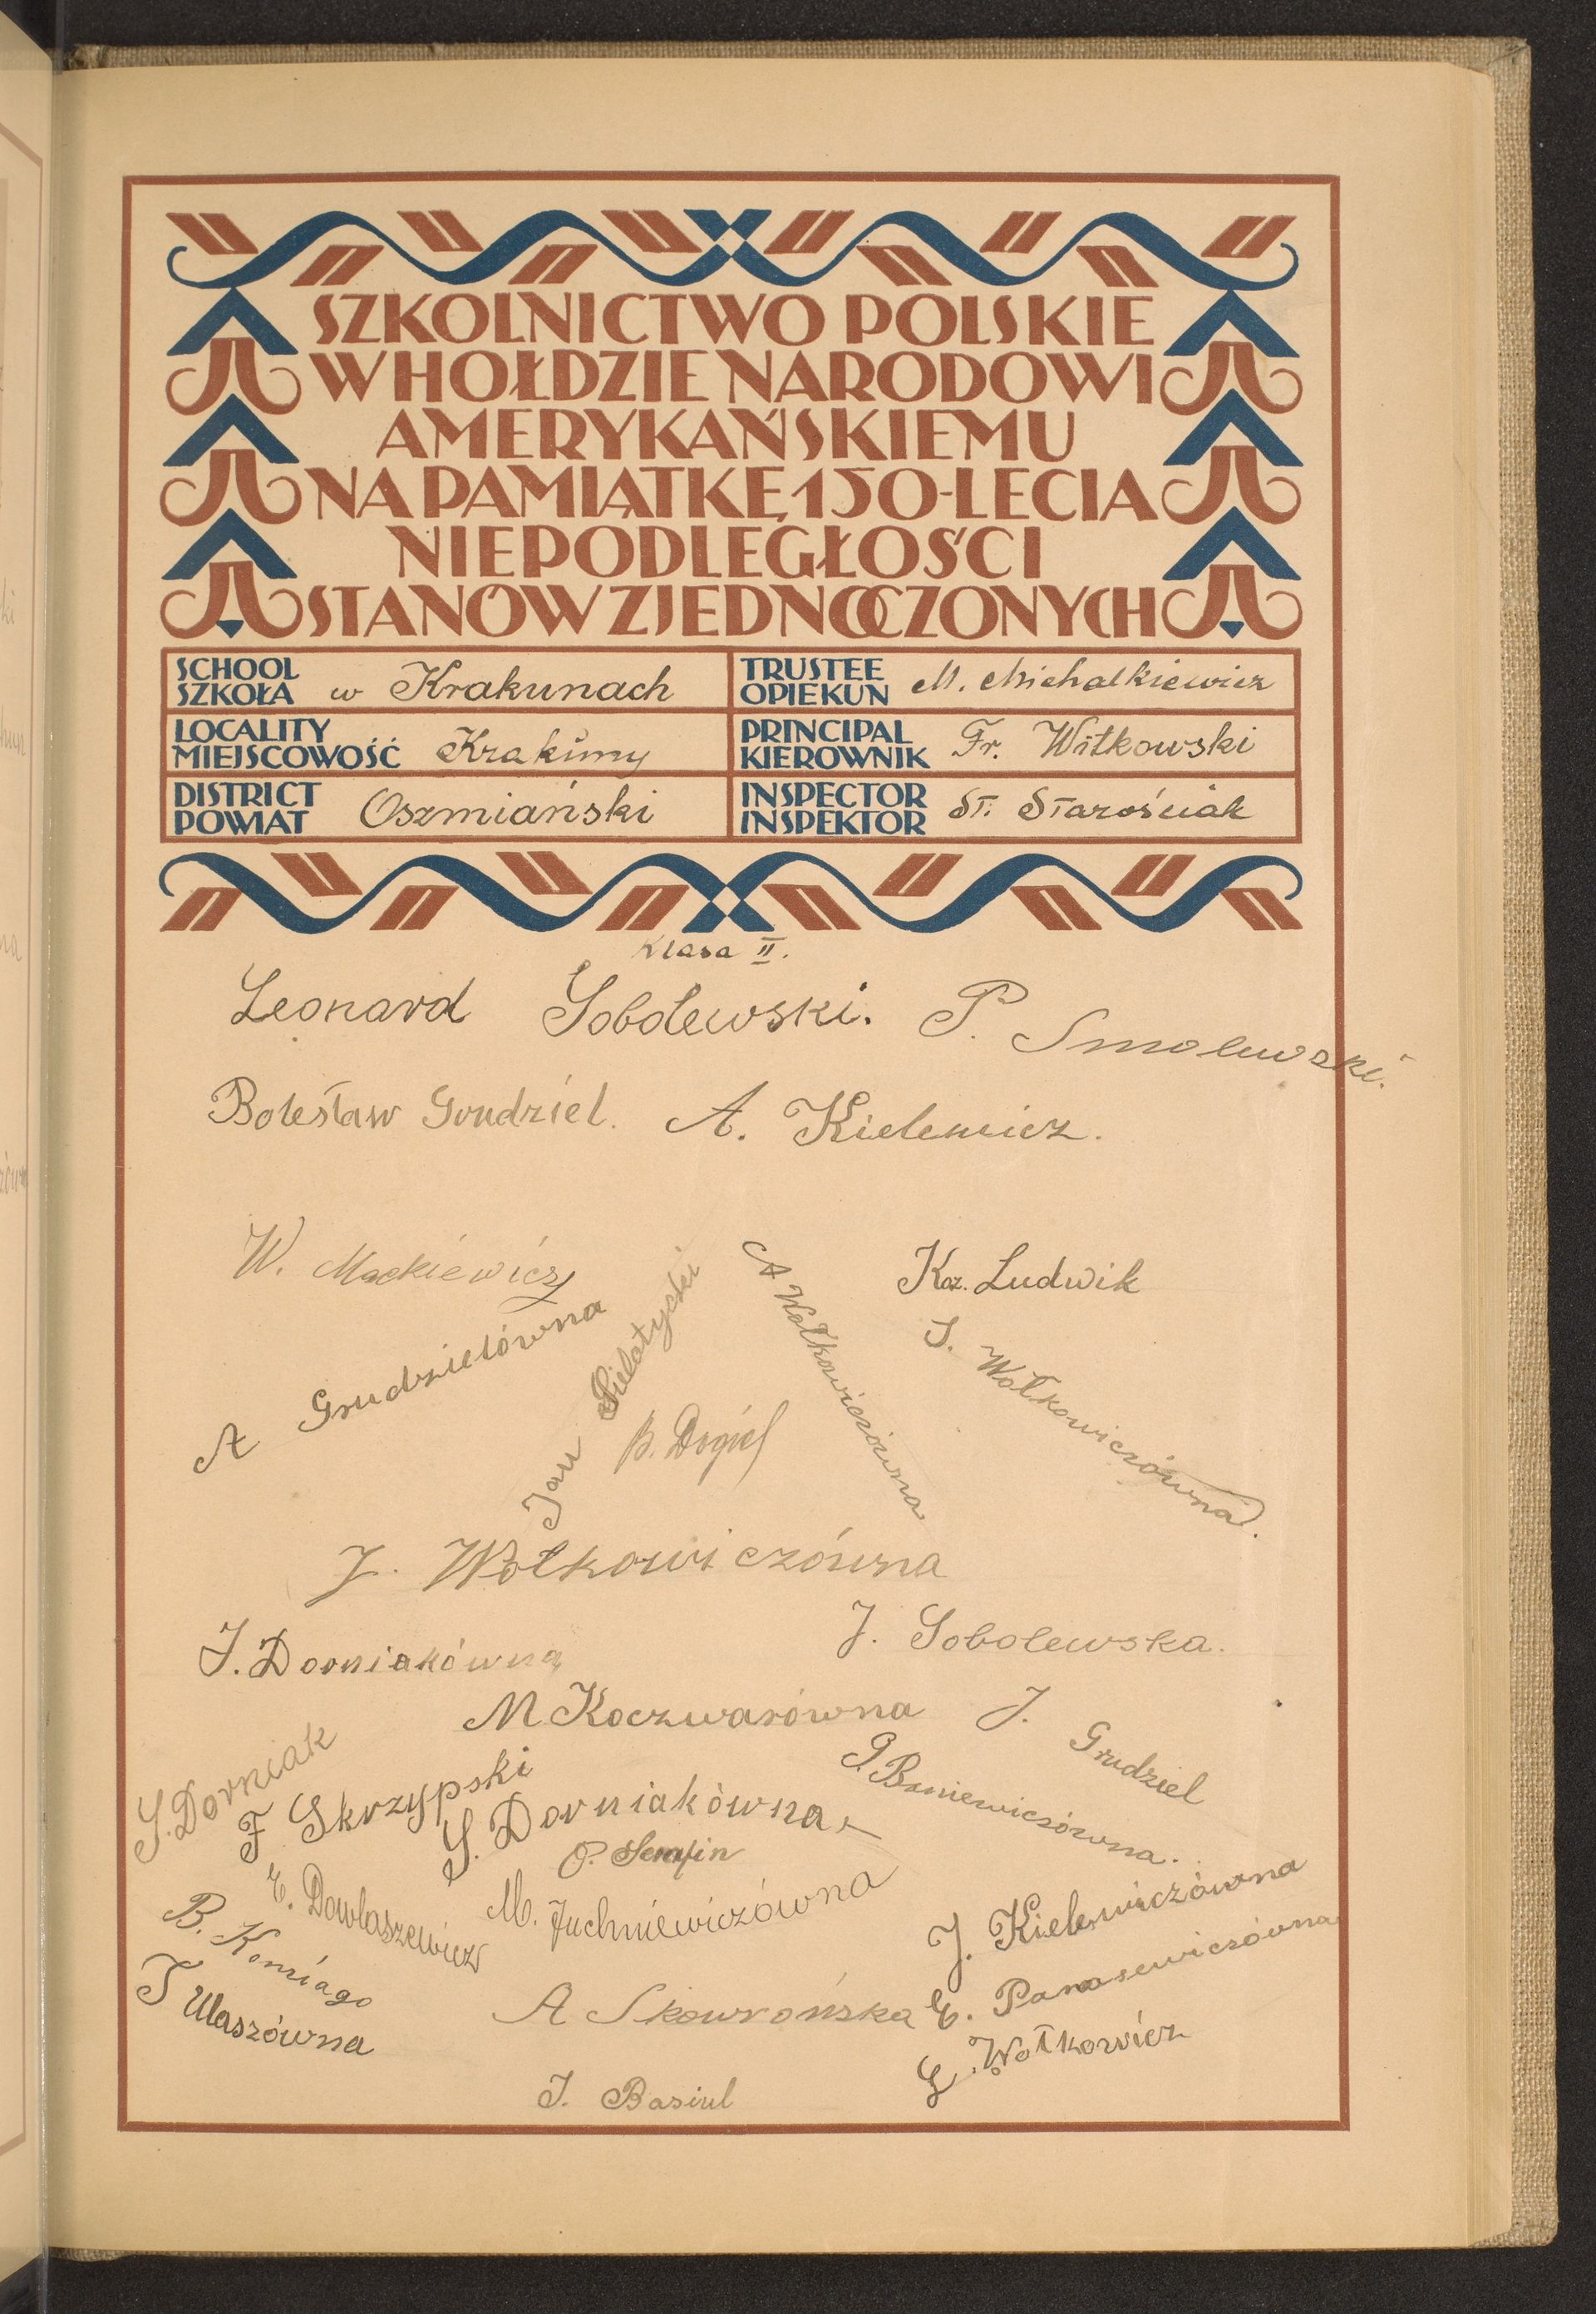 SZKOLNICTWO POLSKIE
W HOŁDZIE NARODOWI
AMERYKAŃSKIEMU
NA PAMIĄTKĘ 150-LECIA
NIEPODLEGŁOŚCI
STANÓW ZJEDNOCZONYCH
SCHOOL
SZKOŁA w Krakunach
TRUSTEE
OPIEKUN M. Michalkiewicz
LOCALITY
MIEJSCOWOŚĆ Krakuny
PRINCIPAL
KIEROWNIK Fr. Witkowski
DISTRICT
POWIAT Oszmiański
INSPECTOR
INSPEKTOR St. Starościak
Klasa II.
Leonard Sobolewski. P. Smolewski.
Bolesław Grudziel. A. Kielewicz.
W. Mackiewicz
Kaz. Ludwik
A Grudzielówna
Jan
A Wołkowiczówna
S. Wołkowiczówna.
B. Dogiel
J. Wołkowiczówna
J. Dorniakówna
J. Sobolewska.
M Koczwarówna
J. Grudziel
S. Dorniak
F Skrzypski
S. Dorniakówna
G. Baniewiczówna.
O. Serafin
E. Dowlaszewicz
M. Juchniewiczówna
B. Komiago
J. Kielewiczówna
T Ulaszówna
A Skowrońska
E. Panasewiczówna
L. Wołkowicz
J. Basiul